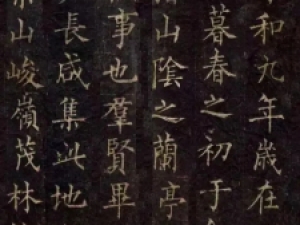 和九年歲在
暮春之初于
山陰之蘭亭
事也羣賢畢
長咸集此地
山峻嶺茂林